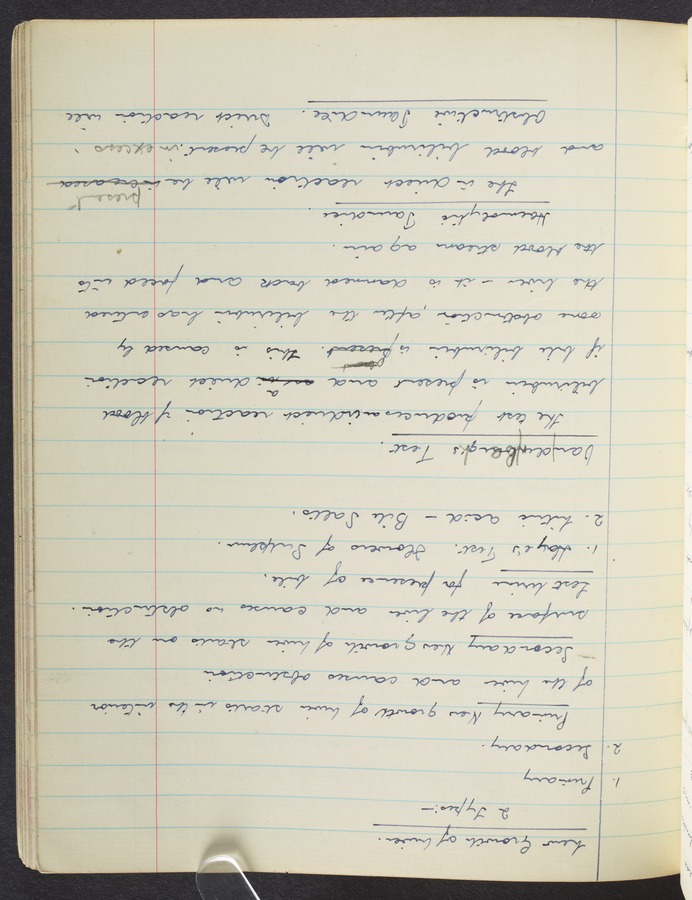 New Growth of Liver.
2 Types:-
1. Primary
2. Secondary.
Primary New growth of liver starts in its interior
of the liver and causes obstruction
Secondary New growth of liver starts on the
surface of the liver and causes no obstruction.
Test Urine for presence of bile.
1. Haye's Test. Flowers of Sulphur.
2. Nitric acid - Bile Salts.
Vandenberg's Test.
The test produces an indirect reaction if blood
bilirubin is present and a direct reaction
if bile bilirubin is present. This is caused by
some obstruction, after the bilirubin has entered
the liver - it is dammed back and forced into
the blood stream again.
Haemolytic Jaundice.
The in direct reaction will be increased present
and blood bilirubin will be present in excess.
Obstructive Jaundice. Direct reaction will